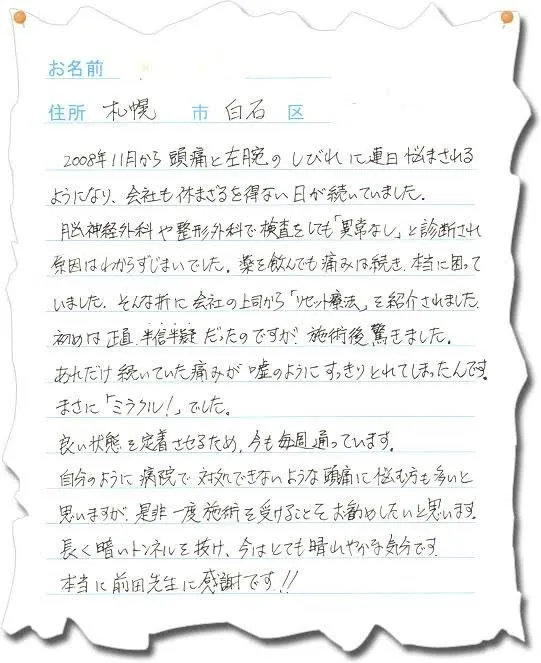 お名前
住所 札幌 市 白石 区
2008年11月から頭痛と左腕のしびれに連日悩まされる
ようになり、会社も休まざるを得ない日が続いていました。
脳神経外科や整形外科で検査をしても「異常なし」と診断され
原因はわからずじまいでした。薬を飲んでも痛みは続き、本当に困って
いました。そんな折に会社の上司から「リセット療法」を紹介されました。
初めは正直、半信半疑だったのですが、施術後驚きました。
あれだけ続いていた痛みが嘘のようにすっきりとれてしまったんです。
まさに「ミラクル!」でした。
良い状態を定着させるため、今も毎週通っています。
自分のように病院で対処できないような頭痛に悩む方も多いと
思いますが、是非一度施術を受けることをお勧めしたいと思います。
長く暗いトンネルを抜け、今はとても晴れやかな気分です。
本当に前田先生に感謝です!!